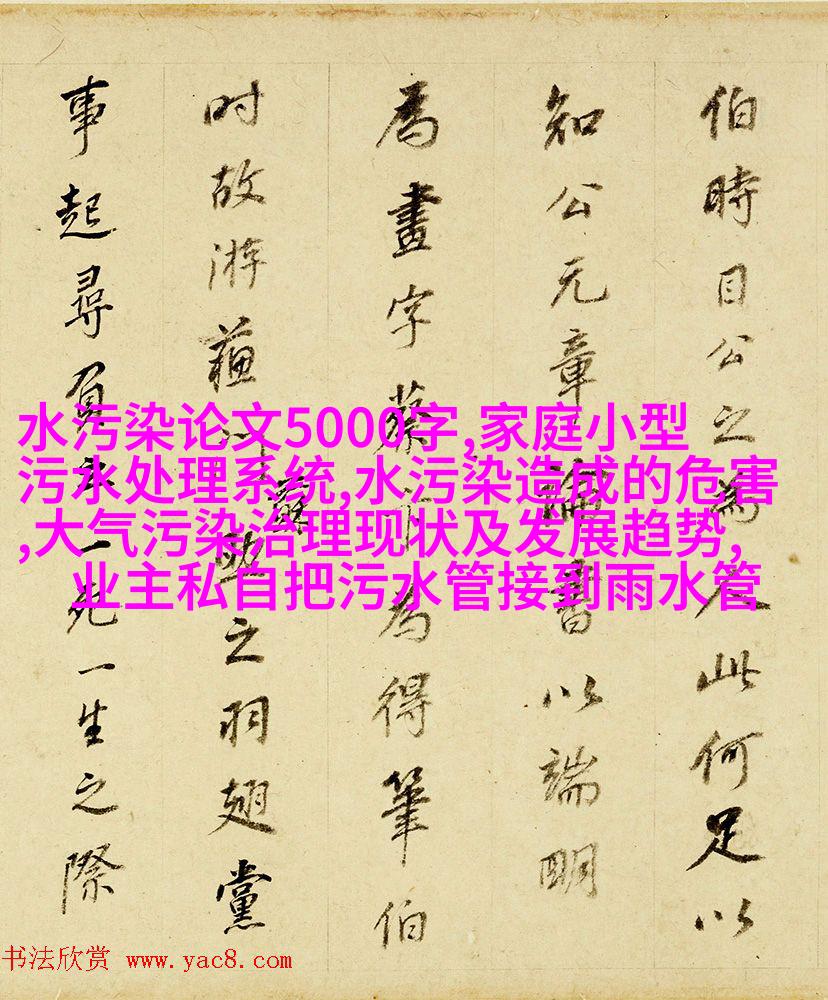 伯時目公之為人此何足以
知公元章論書以端明
為畫字蔡為得筆伯
时故游蘓之羽翅黨
事起尋負一死一生之際
水污染论文5000字,家庭小型
污水处理系统,水污染造成的危害
,大气污染治理现状及发展趋势,
业主私自把污水管接到雨水管
书法欣赏 www.yac8.com